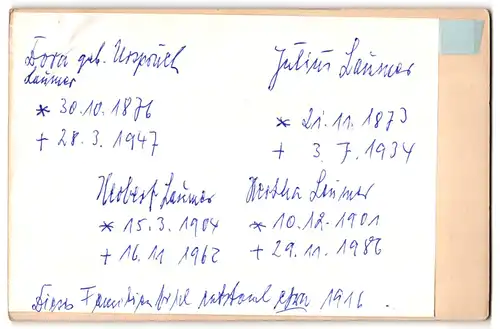 Dora geb. Urspruch
Laumer
* 30.10.1876
+ 28.3.1947
Julius Laumer
* 21.11.1873
+ 3.7.1934
Herbert Laumer
* 15.3.1904
+ 16.11 1962
Hertha Laumer
* 10.12.1901
+ 29.11.1986
Dieses Familienbild entstand etwa 1916.